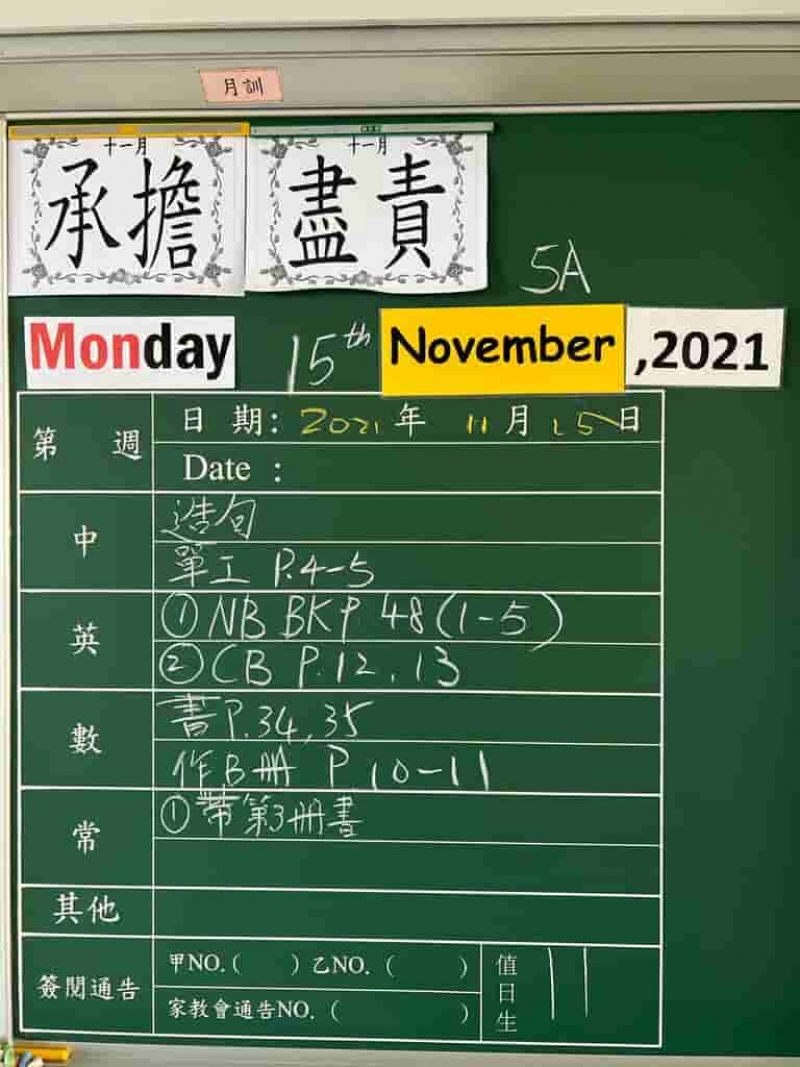 月訓
十一月 十一月
承擔 盡責
5A
Monday 15th November ,2021
第 週 日 期: 2021 年 11 月 15 日
Date :
中 造句
單工 P.4-5
英 ①NB BKP 48(1-5)
②CB P.12,13
數 書P.34,35
作B冊 P 10-11
常 ①帶第3冊書
其他
簽閱通告 甲NO.( ) 乙NO. ( ) 值日生 11
家教會通告NO. ( )